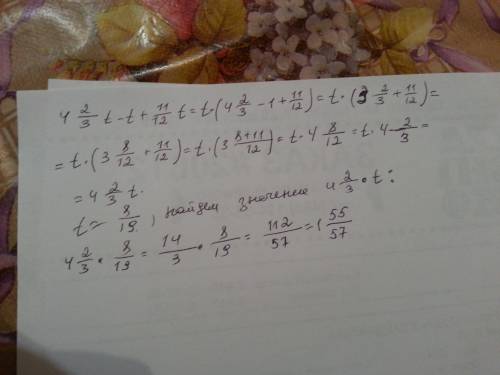 4 2/3 t - t + 11/12 t = t·(4 2/3 - 1 + 11/12) = t·(3 2/3 + 11/12) =
= t·(3 8/12 + 11/12) = t·(3 8+11/12) = t·4 8/12 = t·4 2/3 =
= 4 2/3 t.
t = 8/19, найдем значение 4 2/3 · t:
4 2/3 · 8/19 = 14/3 · 8/19 = 112/57 = 1 55/57